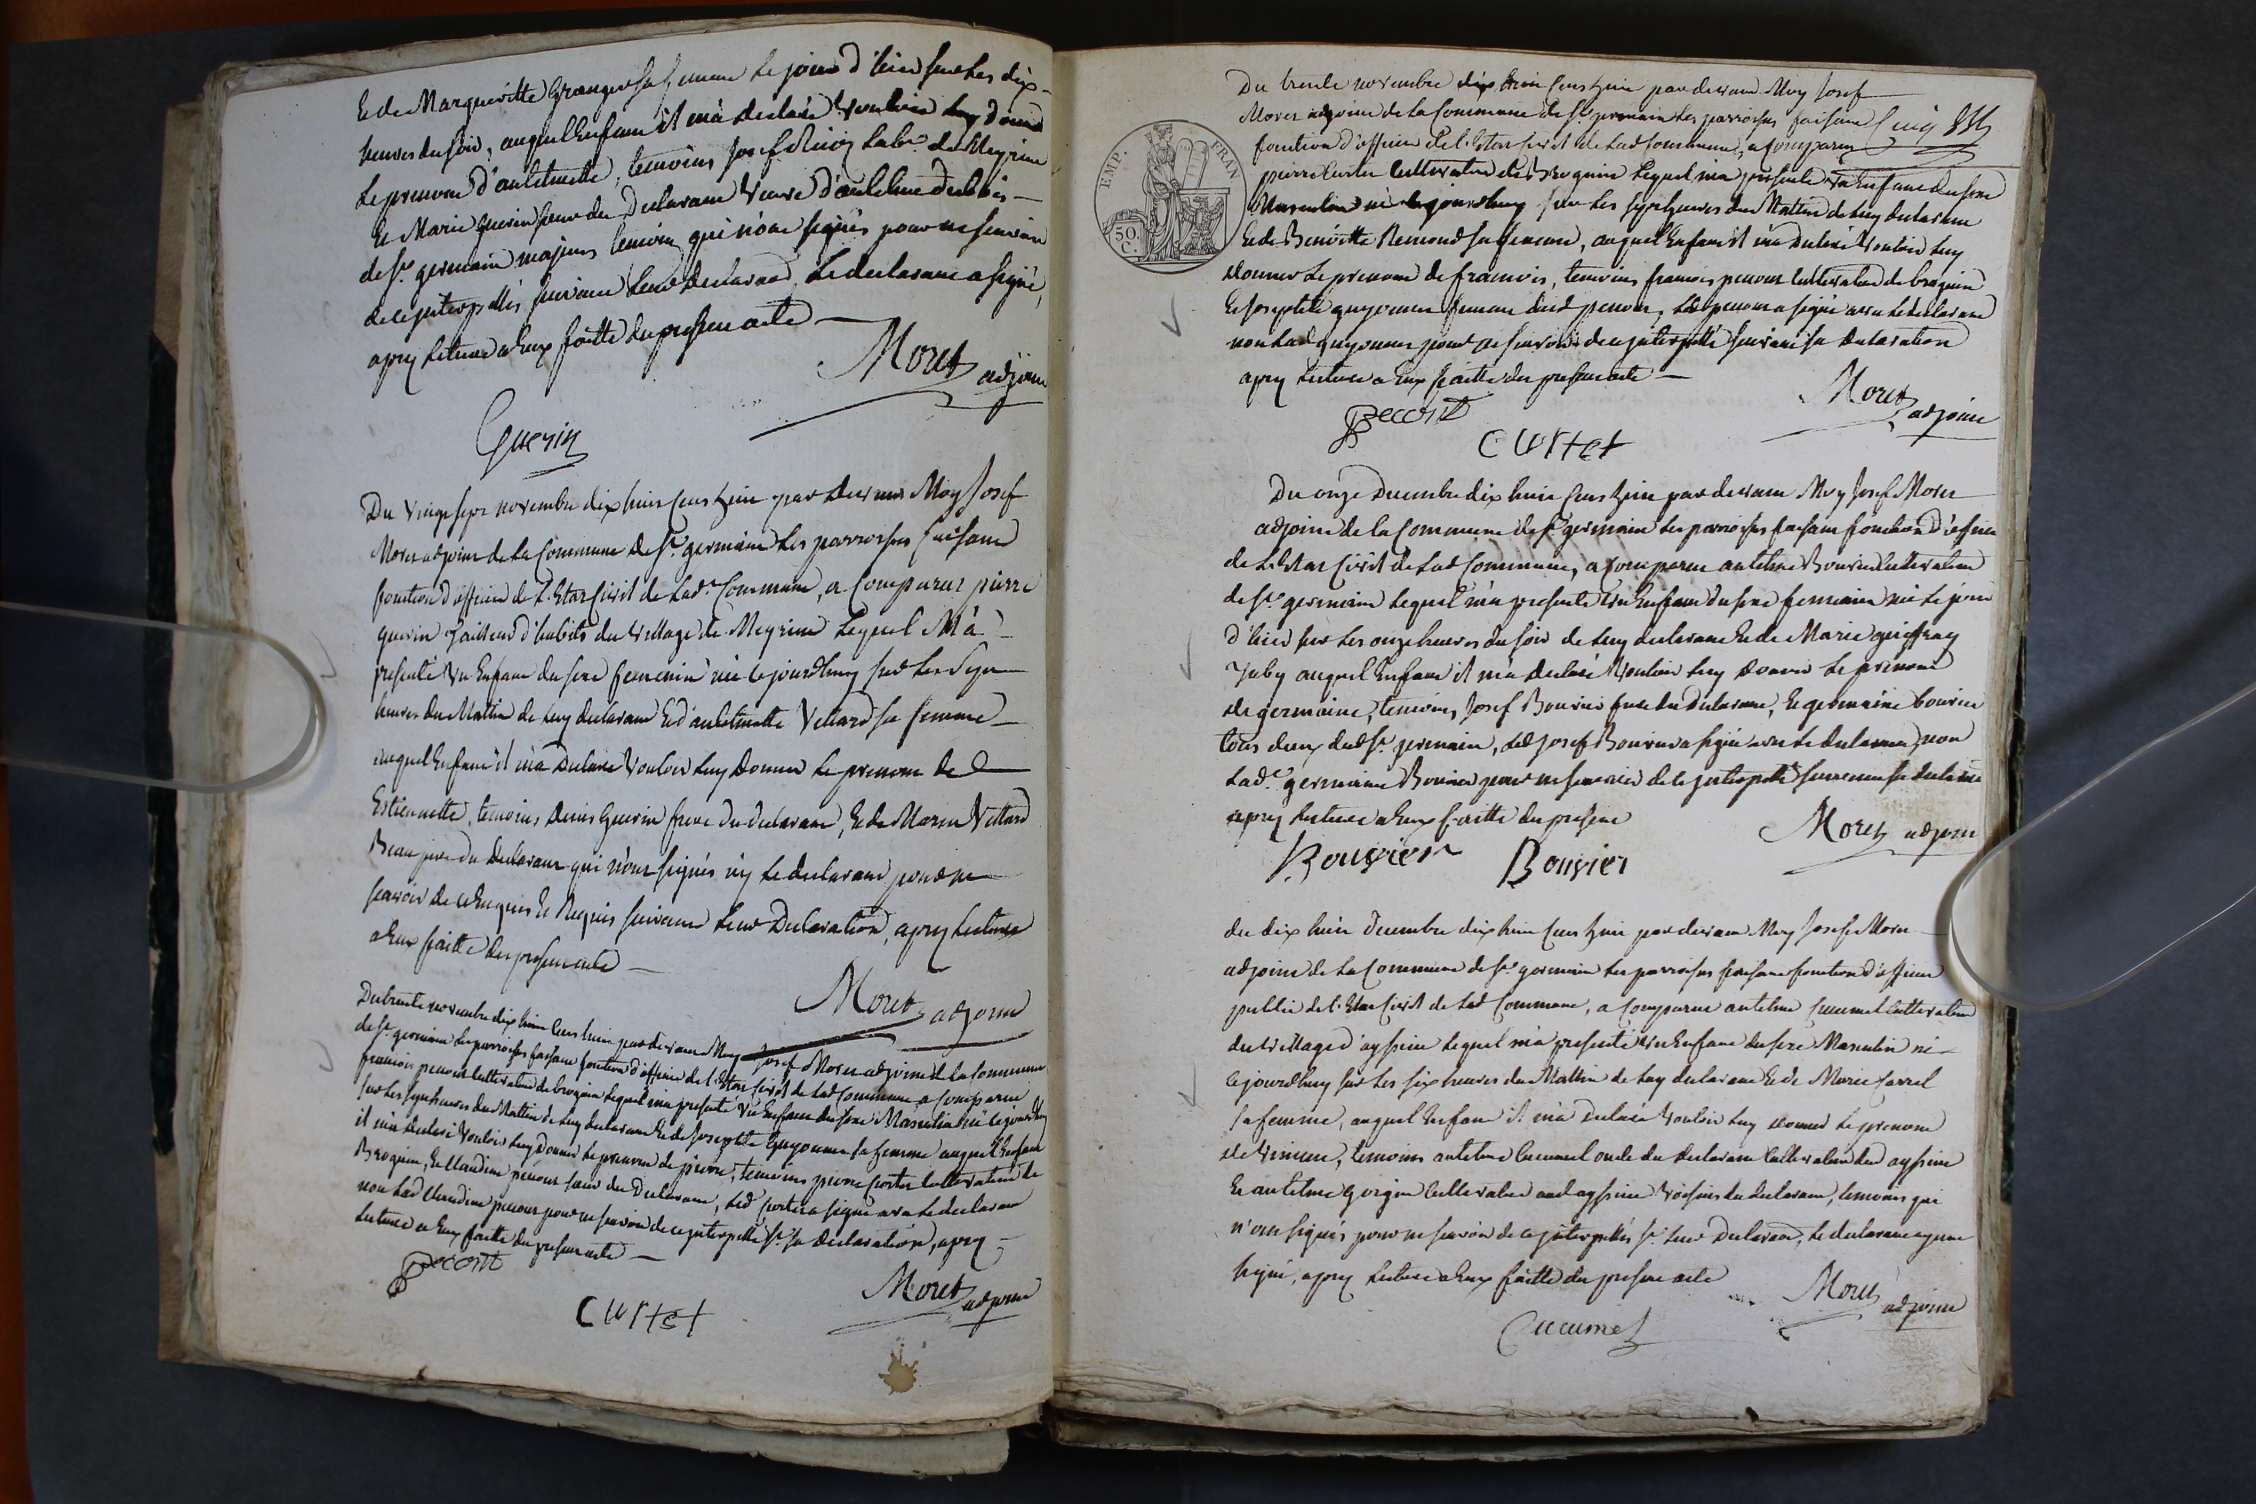 Et de Margueritte Granger sa femme le jour d'hier sur les dix
heures du soir, auquel Enfant il m'a declaré vouloir luy donner
le prenom d'antelmette, temoins Josef labr. de Meyrieu
Et Marie guerin soeur du Declarant veuve d'antelme Dubois
de St. germain majeurs temoins qui n'ont signés pour ne scavoir
de ce jnterpellés suivant leur Declaraon, le declarant a signé,
apres lecture a Eux faitte du present acte
Moret adjoint
Guerin
Du vingt sept novembre dix huit cent huit par devant Moy Josef
Moret adjoint de la Commune de St. germain les parroisses faisant
fonction d'officier de L'Etat Civil de lade. Commune, a Comparut pierre
guerin Tailleur d'habits du village de Meyrieu Lequel M'a
presenté Un Enfant du sexe feminin né ce jourd'huy sur les Sept
heures du Mattin de luy declarant Et d'antelmette Vettard sa femme
auquel Enfant il m'a Declaré Vouloir luy Donner le prenom de
Estiennette, temoins Denis Guerin frere du declarant, Et de Marin Vettard
Beau pere du Declarant qui n'ont signés ny le declarant pour ne
scavoir de ce Enquis Et Requis suivant leur Declaration, apres lecture
a Eux faitte du present acte
Moret adjoint
Du trente novembre dix huit Cent huit par devant Moy Josef Moret adjoint de la Commune
de St. germain les parroisses faisant fonction d'officier de l'Etat Civil de lad Commune a Comparut
francois pecout Cultivateur de brognin Lequel m'a presenté Un Enfant du sexe Masculin né ce jourd'huy
sur les sept heures du Mattin de luy declarant Et de Josephte Guyonnet sa femme auquel Enfant
il m'a declaré Vouloir luy Donner le prenom de pierre, temoins pierre Curtet Cultivateur de
Brognin, Et Claudine pecout soeur du Declarant, led Curtet a signé avec le declarant
non lad Claudine pecout pour ne scavoir de ce jnterpellé st. sa declaration, apres
lecture a Eux faitte du present acte
Pecout
Curtet
Moret adjoint
Du trente novembre dix huit Cent huit par devant Moy Josef
Moret adjoint de la Commune de St. germain les parroisses faisant
fonction d'officier de l'Etat Civil de lad Commune, a Comparu
pierre Curtet Cultivateur de Brognin Lequel m'a presenté Un Enfant du sexe
Masculin né ce jourd'huy sur les sept heures du Mattin de luy declarant
Et de Benoitte Remond sa femme, auquel Enfant il m'a declaré Vouloir luy
donner le prenom de francois, temoins francois pecout Cultivateur de brognin
Et Josephte guyonnet femme dud pecout, led pecout a signé avec le declarant
non lad guyonnet pour ne scavoir de ce jnterpellé suivant sa Declaration
apres lecture a Eux faitte du present acte
EMP. FRAN
50 C.
Moret adjoint
Pecout
Curtet
Du onze Decembre dix huit Cent huit par devant Moy Josef Moret
adjoint de la Commune de St. germain les parroisses faisant fonction d'officier
de L'Etat Civil de lad Commune, a Comparu antelme Bouvier Cultivateur
de St. germain Lequel m'a presenté Un Enfant du sexe feminin né le jour
d'hier sur les onze heures du soir de luy declarant Et de Marie
auquel Enfant il m'a declaré Vouloir luy donner le prenom
de germaine, temoins Josef Bouvier frere du declarant, Et germaine bouvier
tous deux dud St. germain, led Josef Bouvier a signé avec le declarant, non
lade. germaine Bouvier pour ne scavoir de ce jnterpellé suivant sa declaraon
apres lecture a Eux faitte du present
Moret adjoint
Bouvier Bouvier
du dix huit Decembre dix huit Cent huit par devant Moy Josef Moret
adjoint de la Commune de St. germain les parroisses faisant fonction d'officier
public de l'Etat Civil de lad Commune, a Comparu antelme Cucumet Cultivateur
du village d'ayssieu Lequel m'a presenté Un Enfant du sexe Masculin né
ce jourd'huy sur les six heures du Mattin de luy declarant Et de Marie Carrel
sa femme, auquel Enfant il m'a declaré Vouloir luy donner le prenom
de Vincent, temoins antelme Cucumet oncle du declarant Cultivateur dud ayssieu
Et antelme Cultivateur aud ayssieu Voisins du declarant, temoins qui
n'ont signés pour ne scavoir de ce jnterpellés st. leur Declaraon, le declarant ayant
signé, apres lecture a Eux faitte du present acte
Moret adjoint
Cucumet